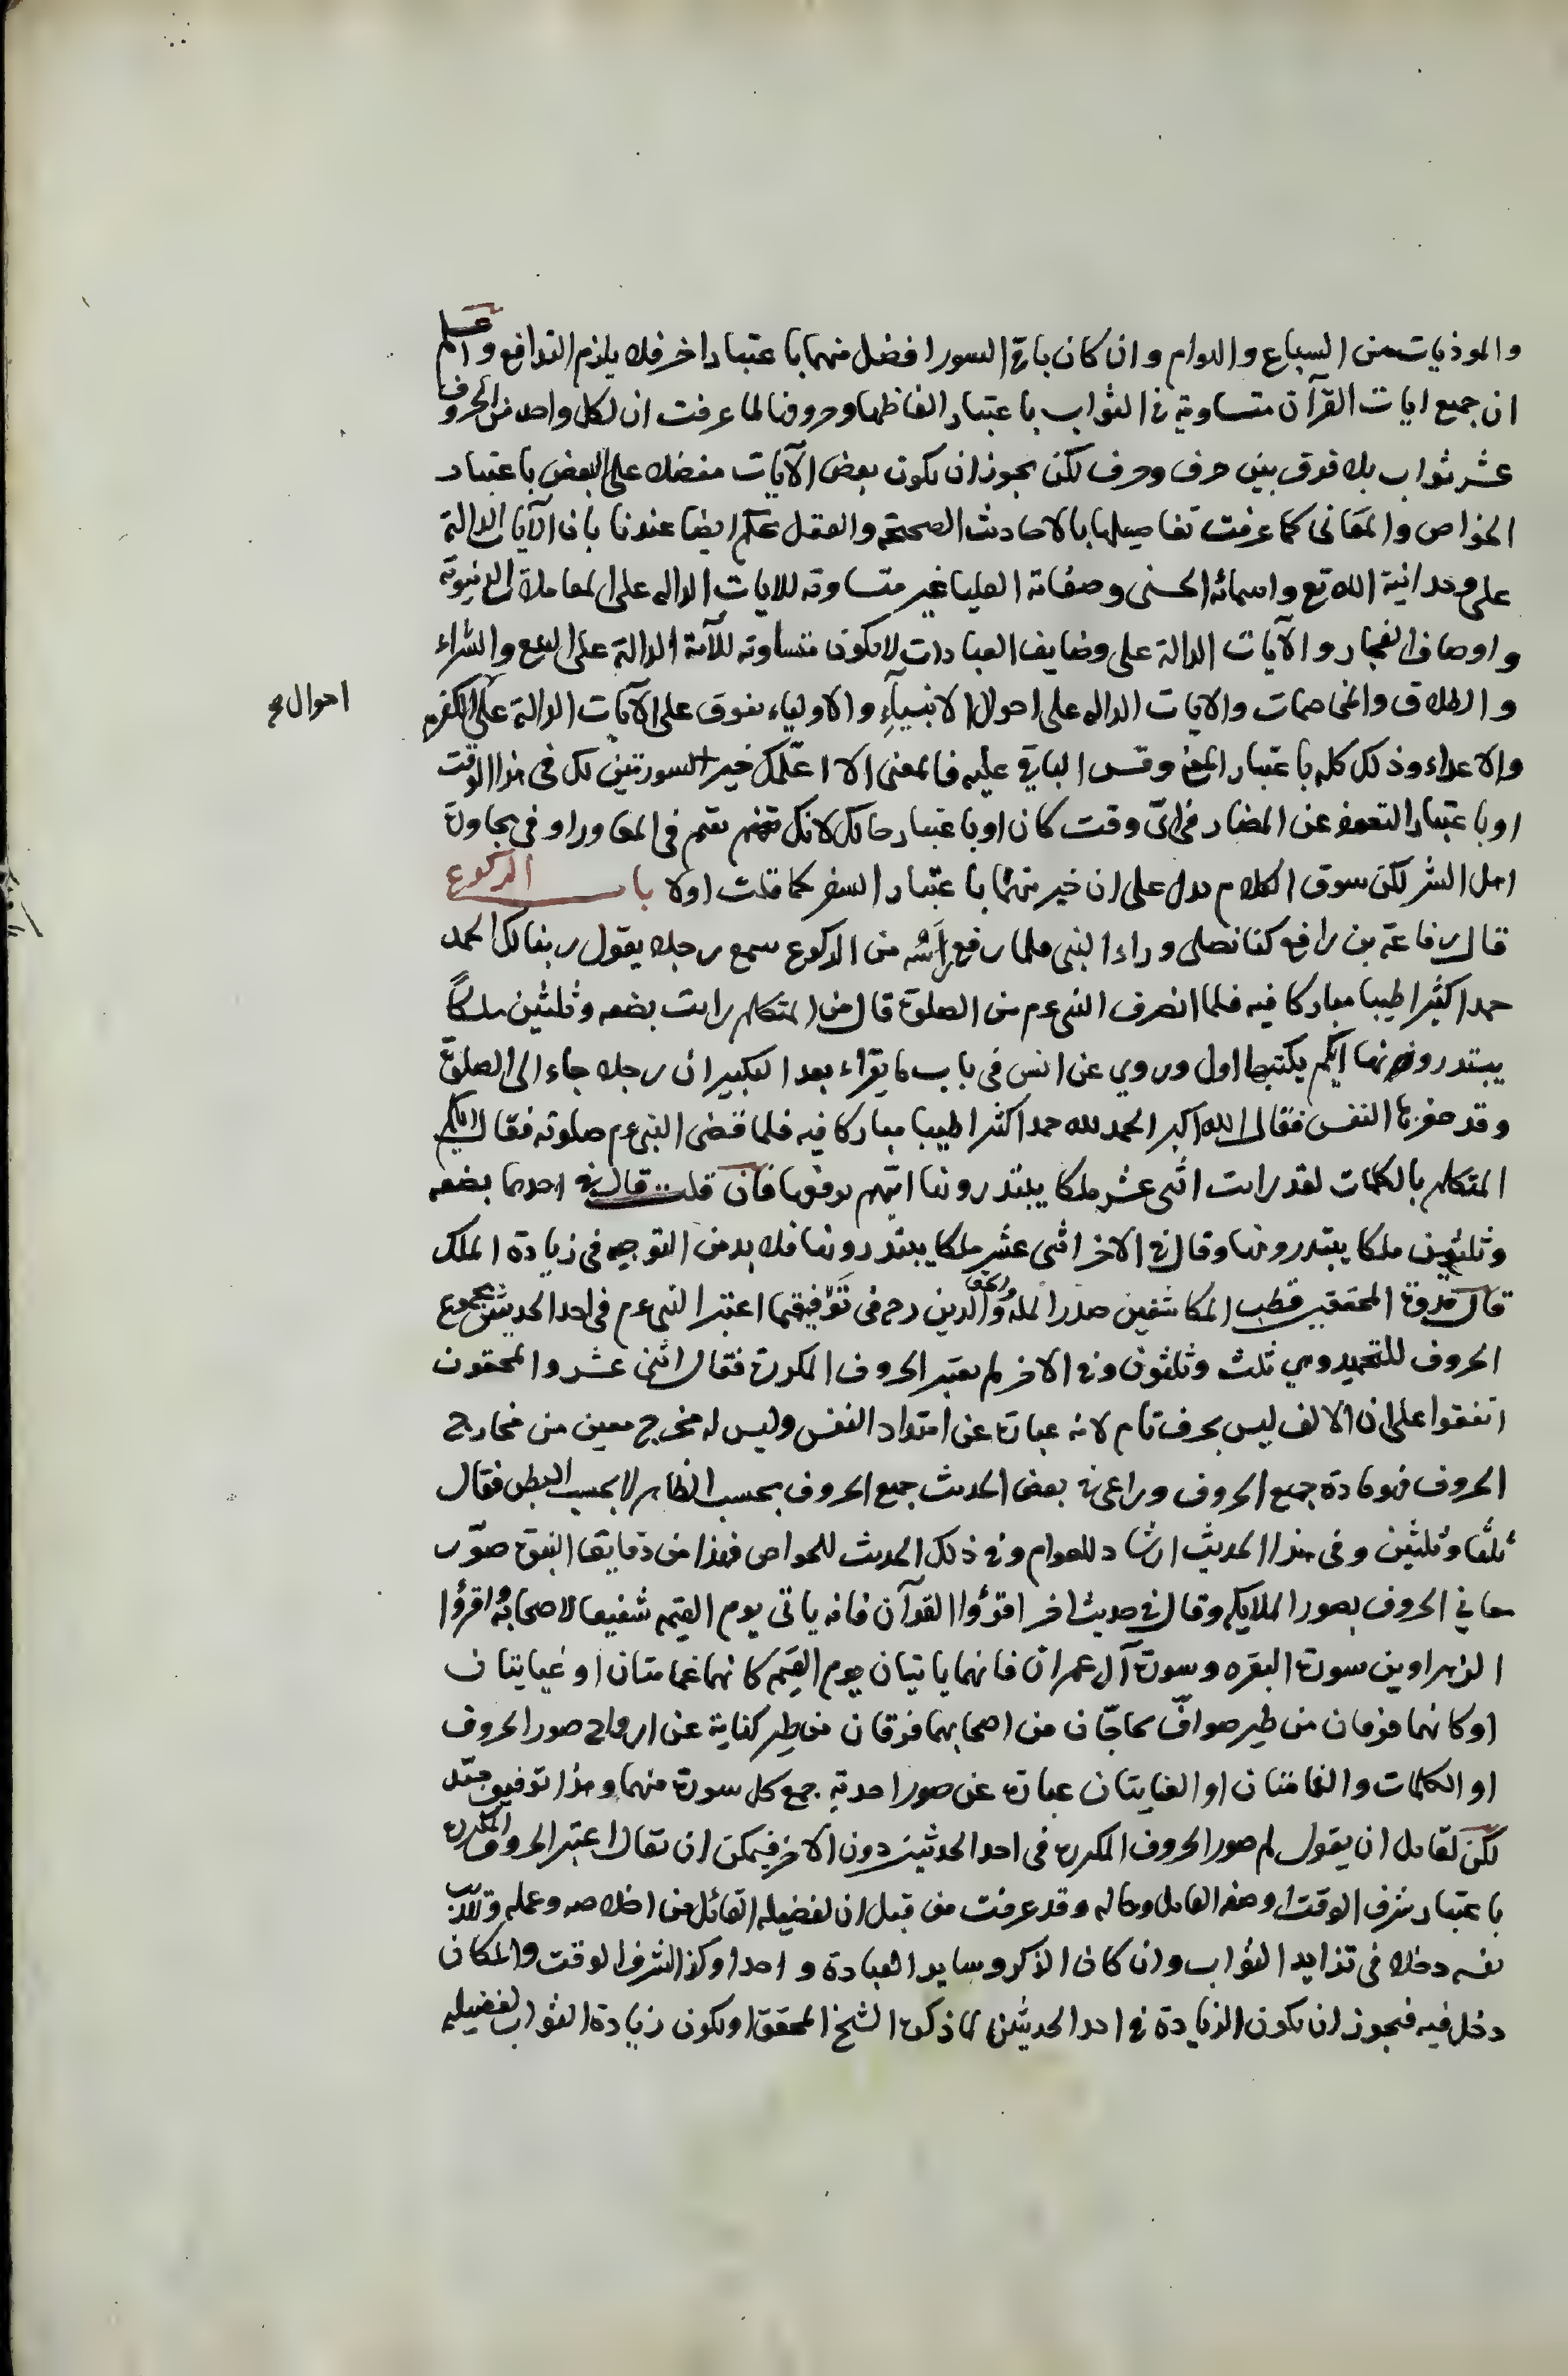 والموذيات من السباع والهوام وان كان باقى السور افضل منهما باعتبار اخر فلا يلزم التدافع واعلم
ان جميع ايات القرآن متساوية فى الثواب باعتبار الفاظها وحروفها لما عرفت ان لكل واحد من الحروف
عشر ثواب بلا فرق بين حرف وحرف لكن يجوز ان يكون بعض الآيات مفضلا على البعض باعتبار
الخواص والمعانى كما عرفت تفاصيلها بالاحاديث الصحيحة والعقل يحكم ايضا عندنا بان الآيات الدالة
على وحدانية الله تع واسمائه الحسنى وصفاته العليا غير متساوية للايات الداله على المعاملات الدنيوية
واوصاف الفجار والآيات الدالة على وضايف العبادات لا يكون متساوية للآية الدالة على البيع والشراء
والطلاق والمخاصمات والايات الداله على احوال الانبياء والاولياء يفوق على الآيات الدالة على الكفرة
احوال صح
والاعداء وذلك كله باعتبار المعنى وقس الباقى عليه فالمعنى الا اعلمك خير السورتين لك فى هذا الوقت
او باعتبار التعوذ عن المضار فى اىّ وقت كان او باعتبار حالك لانك تقيم فى المغاور او فى مجاورة
اهل الشر لكن سوق الكلام يدل على ان خيريتهما باعتبار السفر كما قلت اولا باب الركوع
قال رفاعة بن رافع كنا نصلى وراء النبى فلما رفع رأسه من الركوع سمع رجلا يقول ربنا لك الحمد
حمدا كثيرا طيبا مباركا فيه فلما انصرف النبى عم من الصلوة قال من المتكلم رايت بضعه وثلثين ملكاً
يبتدرونها ايكم يكتبها اول وروي عن انس فى باب ما يقراء بعد التكبير ان رجلا جاء الى الصلوة
وقد حفزها النفس فقال الله اكبر الحمد لله حمدا كثيرا طيبا مباركا فيه فلما قضى النبى عم صلوته فقال ايكم
المتكلم بالكلمات لقد رايت اثنى عشر ملكا يبتدرونها ايهم يرفعها فان قلت قال فى احدهما بضعه
وثلثين ملكا يبتدرونها وقال فى الاخر اثنى عشر ملكا يبتدرونها فلا بد من التوجيه فى زيادة الملك
قال قدوة المحققين قطب المكاشفين صدر الملة والحق والدين رحم فى توفيقهما اعتبر النبى عم فى احد الحديثين مجموع
الحروف للتحميد وهي ثلث وثلثون وفى الاخر لم يعتبر الحروف المكررة فقال اثنى عشر والمحققون
اتفقوا على ان الالف ليس بحرف تام لانه عبارة عن امتداد النفس وليس له مخرج معين من مخارج
الحروف فهو مادة جميع الحروف وراعى فى بعض الحديث جميع الحروف بحسب الظاهر لا بحسب البطن فقال
ثلثا وثلثين وفى هذا الحديث ارشاد للعوام وفى ذلك الحديث للخواص فهذا من دقايق النبوة صوّر
معاني الحروف بصور الملايكه وقال فى حديث اخر اقرؤا القرآن فانه ياتى يوم القيمه شفيعا لاصحابه اقرؤا
الزهراوين سورة البقره وسورة آل عمران فانهما ياتيان يوم القيمه كانهما غمامتان او غيايتان
او كانهما فرقان من طير صوافّ يحاجّان عن اصحابهما فرقان من طير كناية عن ارواح صور الحروف
او الكلمات والغمامتان او الغيايتان عبارة عن صور احدية جمع كل سورة منهما وهذا توفيق جيّد
لكن لقايل ان يقول لم صور الحروف المكررة فى احد الحديثين دون الاخر فيمكن ان يقال اعتبر الحروف المكررة
باعتبار شرف الوقت او صفة القايل وحاله وقد عرفت من قبل ان لفضيلة القائل من اخلاصه وعمله وتلاوة
نفسه دخلا فى تزايد الثواب وان كان الذكر وساير العبادة واحدا وكذا لشرف الوقت والمكان
دخل فيه فيجوز ان يكون الزيادة فى احد الحديثين لما ذكره الشيخ المحقق او يكون زيادة الثواب لفضيلة